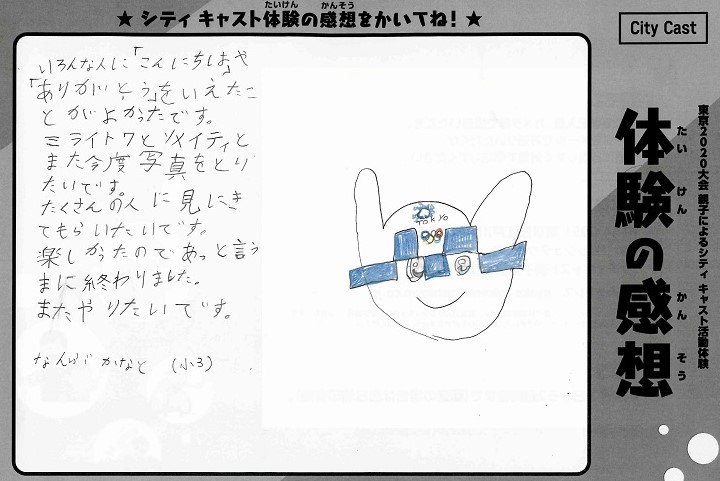 ★ シティ キャスト体験の感想をかいてね！ ★
たいけん かんそう
City Cast
東京2020大会 親子によるシティ キャスト活動体験
体験の感想
たい けん かん そう
いろんな人に「こんにちは」や
「ありがとう」をいえたこ
とがよかったです。
ミライトワとソメイティと
また今度写真をとり
たいです。
たくさんの人に見にき
てもらいたいです。
楽しかったのであっと言う
まに終わりました。
またやりたいです。
かなと (小3)
TOKYO